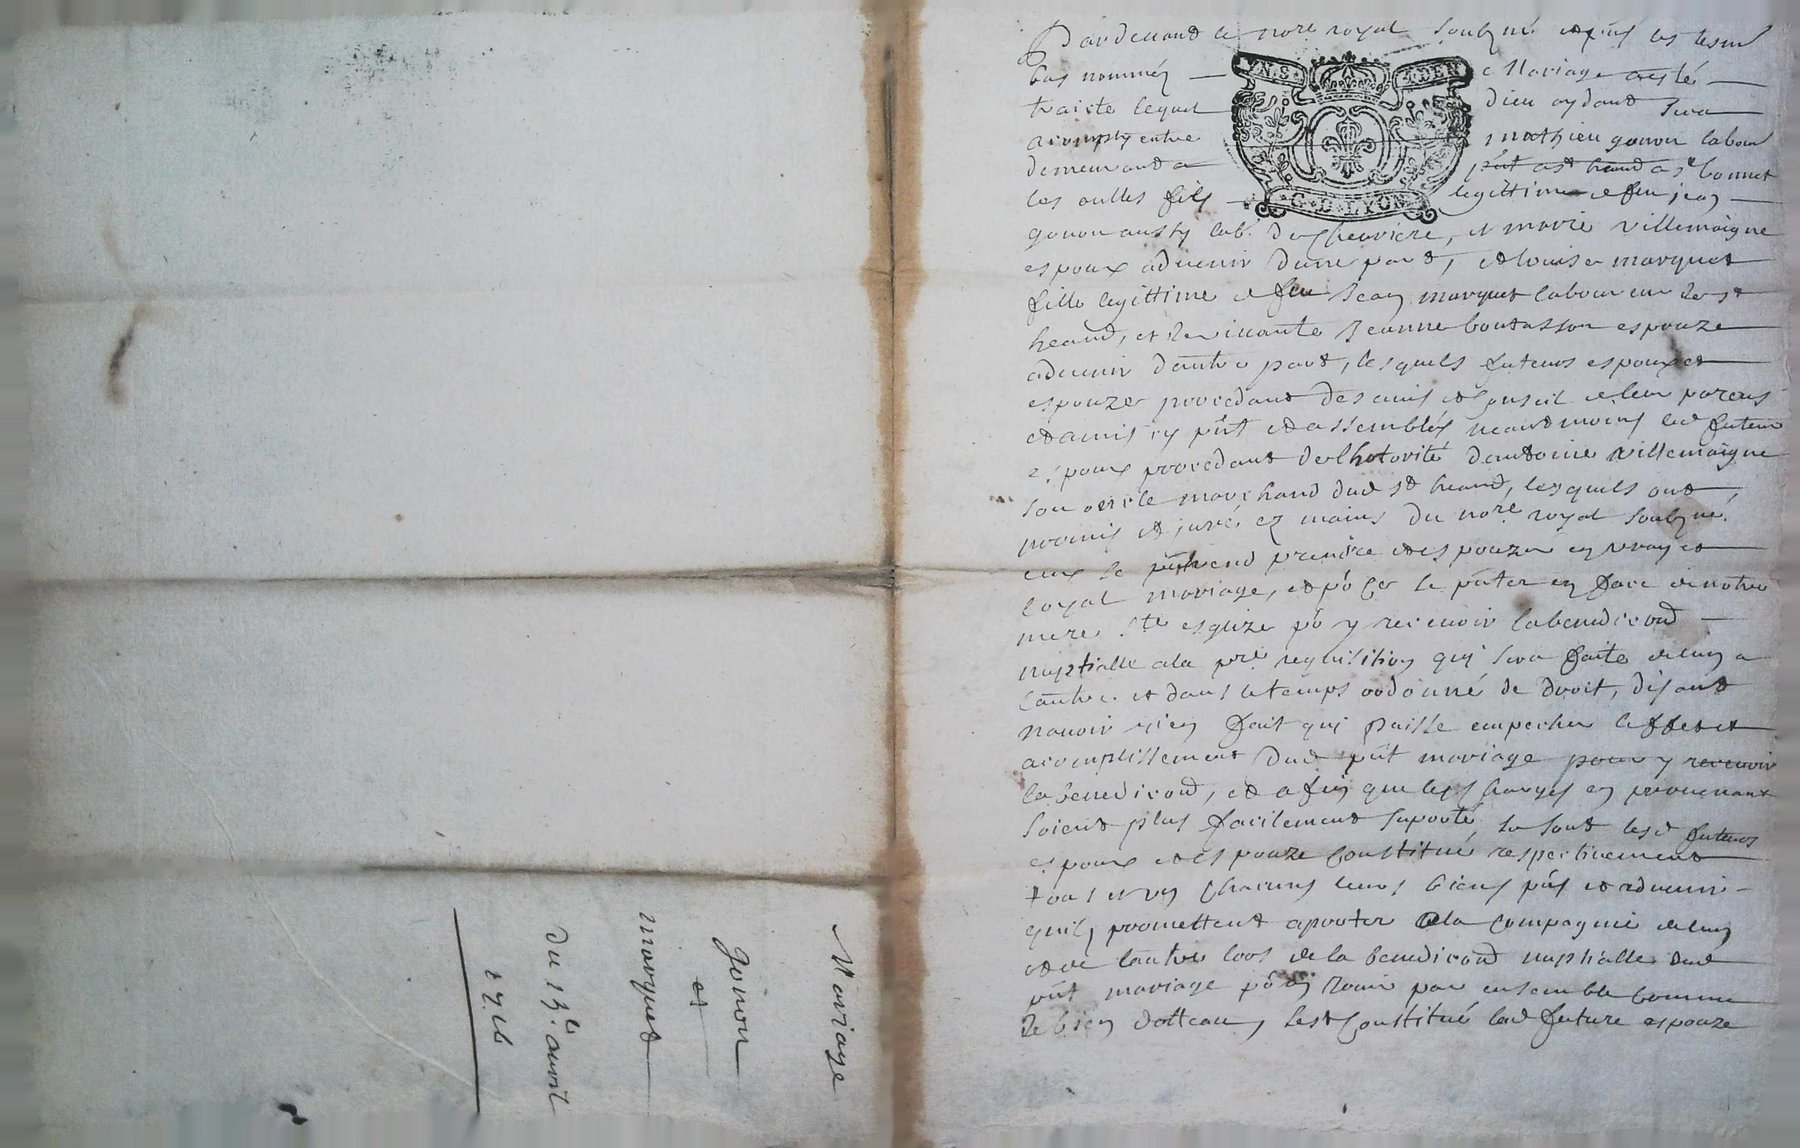 Mariage
Gonon
et
marquet
du 15e avril
1716
Pardevant le nore royal soubzné et pns les tesm
bas nommés — le Mariage a esté —
traicte lequel dieu aydant sera
acomply entre mathieu gonon labour
demeurant a st heand a st bonnet
les oulles fils — legittime de feu jean —
gonon aussy lab. de Chevriere, et marie villemaigne
espoux advenir dune part, et louise marquet
fille legittime de feu Jean marquet laboureur de st
heand, et de vivante Jeanne boutasson espouze
advenir dautre part, lesquels futeurs espoux et
espouze procedant des avis et conseil de leur parens
et amis cy pnt et assemblés neantmoins led futeur
espoux procedant de lhotorité dantoine villemaigne
son oncle marchand dud st heand, lesquels ont
promis et juré ez mains du nore royal soubzné
eux se prendre et espouzer en vray et
loyal mariage, et po ce se pnter en face de notre
mere ste esglize po y recevoir la benediction —
nuptialle a la pre requisition qui sera faite de lun a
lautre et dans le temps ordonné de droit, disant
navoir rien fait qui puisse empecher leffet et
acomplissement dud pnt mariage pour y recevoir
la benediction, et afin que les charges en provenant
soient plus facilement suporté, se sont lesd futeurs
espoux et espouze constitué respectivement
tous et un chacuns leurs biens pns et advenir —
quils promettent aporter a la compagnie de lun
et de lautre lors de la benediction nuptialle dud
pnt mariage po en jouir par ensemble comme
de bien dottaux, sest constitué lad future espouze
YN.S. DEN
G.D.LYON